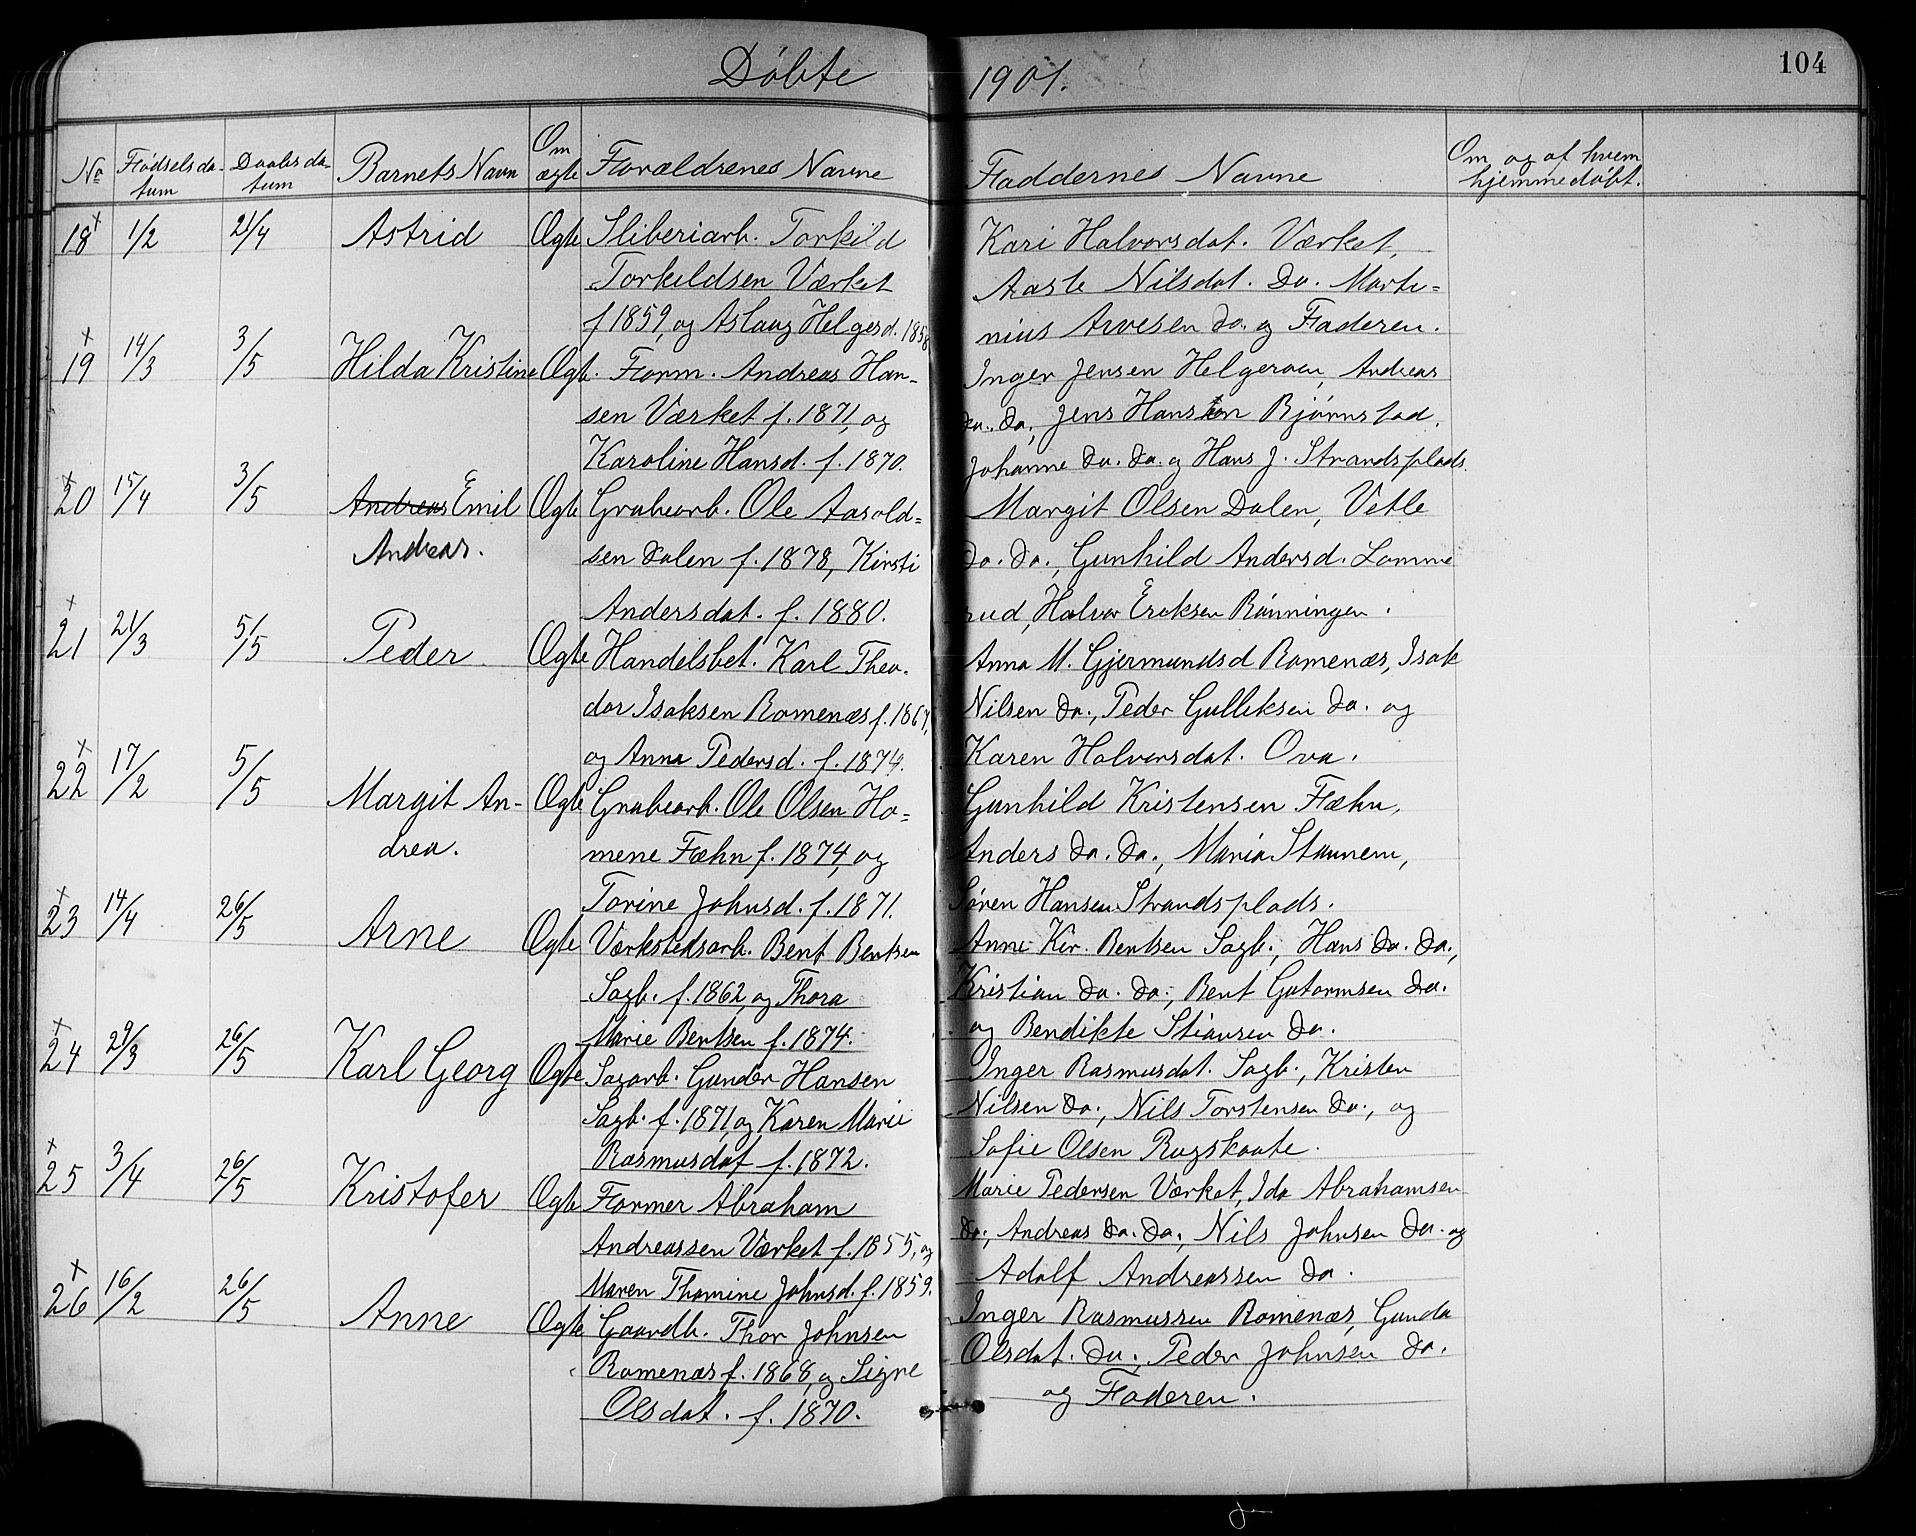 Döbte 1901.
104
No Födselsdatum Daabsdatum Barnets Navn Om ægte Forældrenes Navne Faddernes Navne Om og af hvem hjemmedöbt.
18 1/2 21/4 Astrid Ægte Sliberiarb. Torkild Kari Halvorsdat. Værket,
Torkildsen Værket Aaste Nilsdat. Do. Marti=
f 1859, og Aslaug Helgesd. 1858 nius Arvesen do. og Faderen.
19 14/3 3/5 Hilda Kristine Ægt. Form. Andreas Han- Inger Jensen Helgeroen, Andreas
sen Værket f. 1871, og do. do., Jens Hansen Bjørnstad,
Karoline Hansd. f. 1870. Johanne do. do. og Hans J. Strandsplads.
20 15/4 3/5 Andreas Emil Ægte Grubearb. Ole Aasold= Margit Olsen Dalen, Vetle
Andreas. sen Dalen f. 1878, Kirsti do. do., Gunhild Andersd. Lomme
Andersdat. f. 1880. rud, Halvor Eriksen Rönningen.
21 21/3 5/5 Peder Ægte Handelsbet. Karl Theo- Anna M. Gjermundsd Romenæs, Isak
dor Isaksen Romenæs f. 1867, Nilsen do., Peder Gulliksen do. og
og Anna Pedersd. f. 1874. Karen Halvorsdat. Ova.
22 17/2 5/5 Margit An- Ægte Grubearb. Ole Olsen Ho= Gunhild Kristensen Fæhn,
drea. mene Fæhn f. 1874, og Anders do. do., Maria Staunem,
Torine Johnsd. f. 1871. Sören Hansen Strandsplads.
23 14/4 26/5 Arne Ægte Værkstedsarb. Bent Bentsen Anne Kir. Bentsen Sagb., Hans do. do.,
Sagb. f. 1862, og Thora Kristian do. do., Bent Gutormsen do.
Marie Bentsen f. 1874. og Bendikte Stiansen do.
24 29/3 26/5 Karl Georg Ægte Sagarb. Gunder Hansen Inger Rasmusdat. Sagb., Kristen
Sagb. f. 1871, og Karen Marie Nilsen do., Nils Torstensen do., og
Rasmusdat f. 1872. Sofie Olsen Rugskaate.
25 3/4 26/5 Kristofer Ægte Former Abraham Marie Pedersen Værket, Ida Abrahamsen
Andreassen Værket f. 1855, og do., Andreas do. do., Nils Johnsen do. og
Maren Thomine Johnsd. f. 1859. Adolf Andreassen do.
26 16/2 26/5 Anne Ægte Gaardb. Thor Johnsen Inger Rasmussen Romenæs, Gunda
Romenæs f. 1868, og Signe Olsdat. do., Peder Johnsen do.
Olsdat. f. 1870. og Faderen.